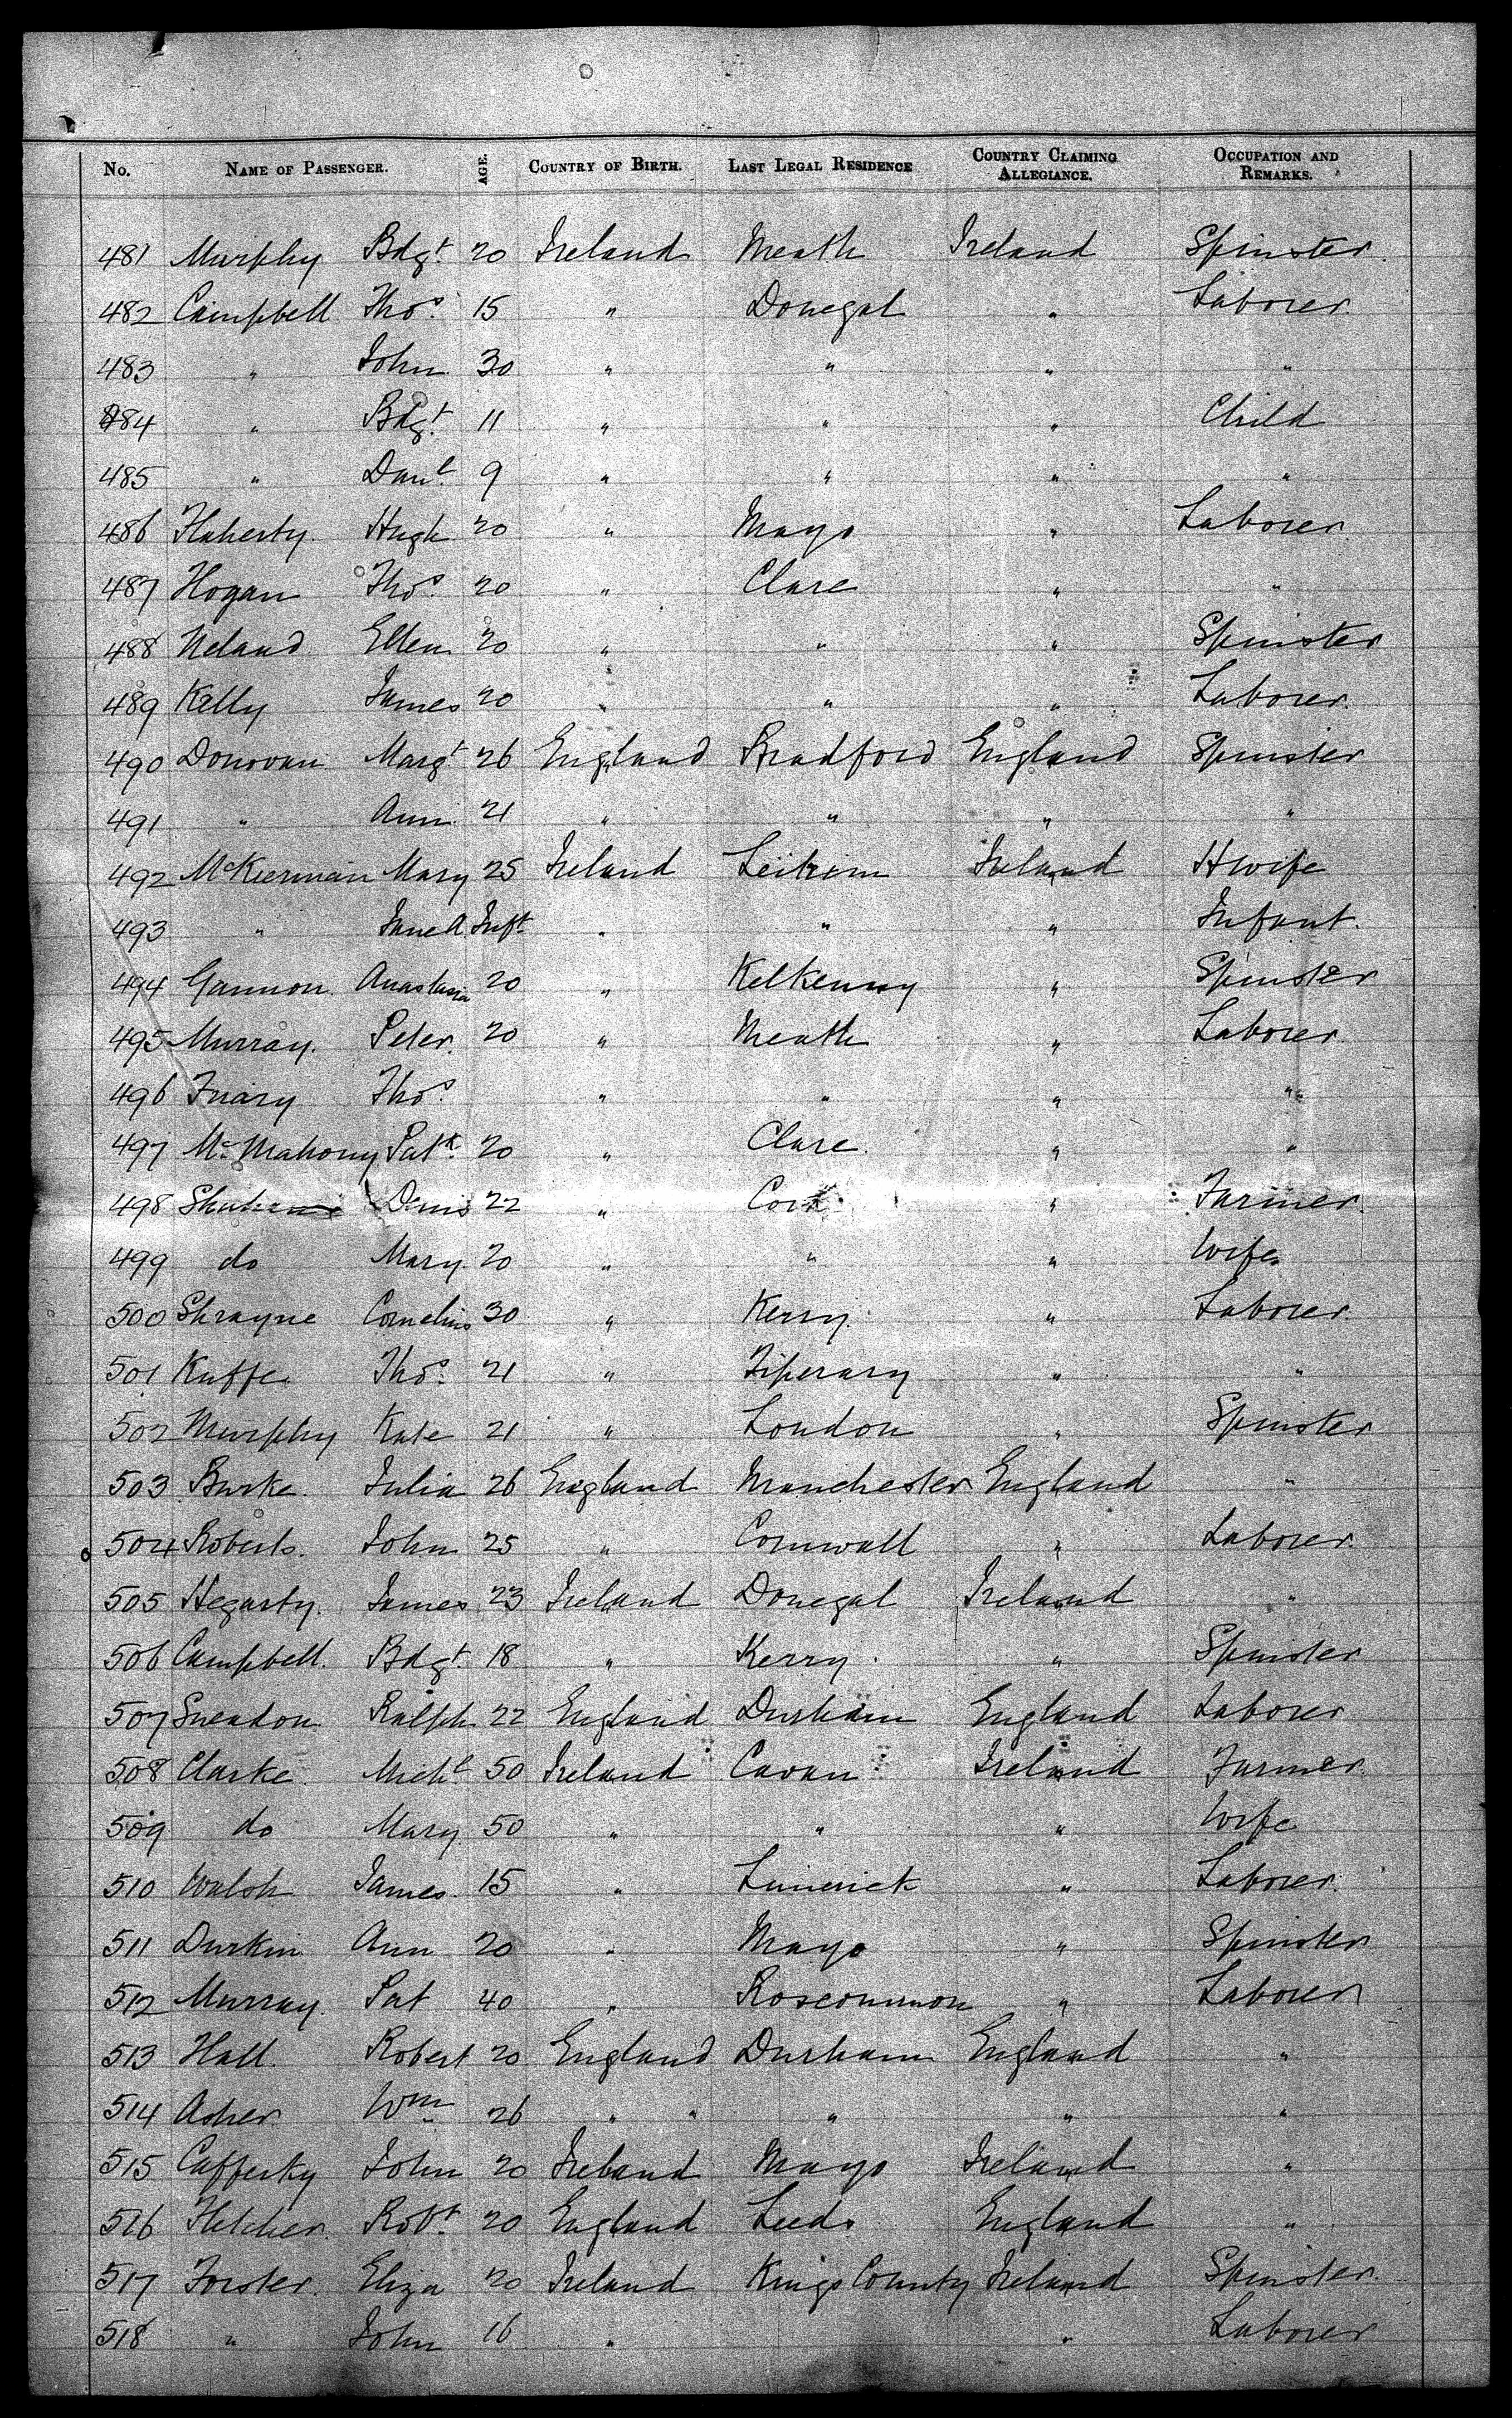 No. NAME OF PASSENGER. AGE. COUNTRY OF BIRTH. LAST LEGAL RESIDENCE COUNTRY CLAIMING ALLEGIANCE. OCCUPATION AND REMARKS.
481 Murphy Bdgt. 20 Ireland Meath Ireland Spinster.
482 Campbell Thos. 15 " Donegal " Laborer.
483 " John 30 " " " "
484 " Bdgt. 11 " " " Child
485 " Danl. 9 " " " "
486 Flaherty. Hugh 20 " Mayo " Laborer
487 Hogan Thos. 20 " Clare " "
488 Neland Ellen 20 " " " Spinster
489 Kelly James 20 " " " Laborer.
490 Donovan Margt. 26 England Bradford England Spinster
491 " Ann. 21 " " " "
492 McKiernan Mary 25 Ireland Leitrim Ireland Hwife
493 " Jane A. Inft. " " " Infant.
494 Gannon. Anastasia 20 " Kelkenny " Spinster
495 Murray. Peter. 20 " Meath " Laborer.
496 Thos. " " " "
497 McMahony Patk. 20 " Clare. " "
498 Denis 22 " Cork " Farmer.
499 do Mary. 20 " " " Wife
500 Shrayne Cornelius 30 " Kerry. " Laborer.
501 Kuffe Thos. 21 " Tiperary " "
502 Murphy Kate 21 " London " Spinster
503 Burke. Julia 26 England Manchester England "
504 Roberts. John 25 " Cornwall " Laborer.
505 Hegarty. James 23 Ireland Donegal Ireland "
506 Campbell. Bdgt. 18 " Kerry. " Spinster
507 Sneadon Ralph 22 England Durham England Laborer
508 Clarke. Michl. 50 Ireland Cavan Ireland Farmer.
509 do Mary. 50 " " " Wife
510 Walsh James. 15 " Limerick " Laborer.
511 Durkin Ann 20 " Mayo " Spinster
512 Murray. Pat 40 " Roscommon " Laborer
513 Hall. Robert 20 England Durham England "
514 Asher Wm 26 " " " " "
515 Cafferky John 20 Ireland Mayo Ireland "
516 Fletcher. Robt. 20 England Leeds England "
517 Forster. Eliza 20 Ireland Kings County Ireland Spinster.
518 " John 16 " " Laborer